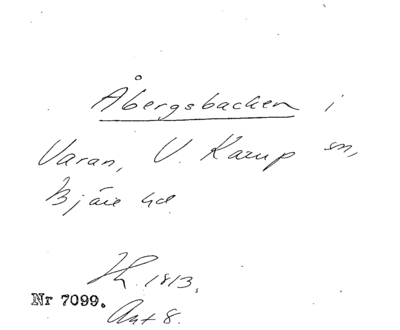 Åbergsbacken i
Varan, V. Karup sn,
Bjäre hd.
Lh. 1813.
Nr 7099.
Ant 8.